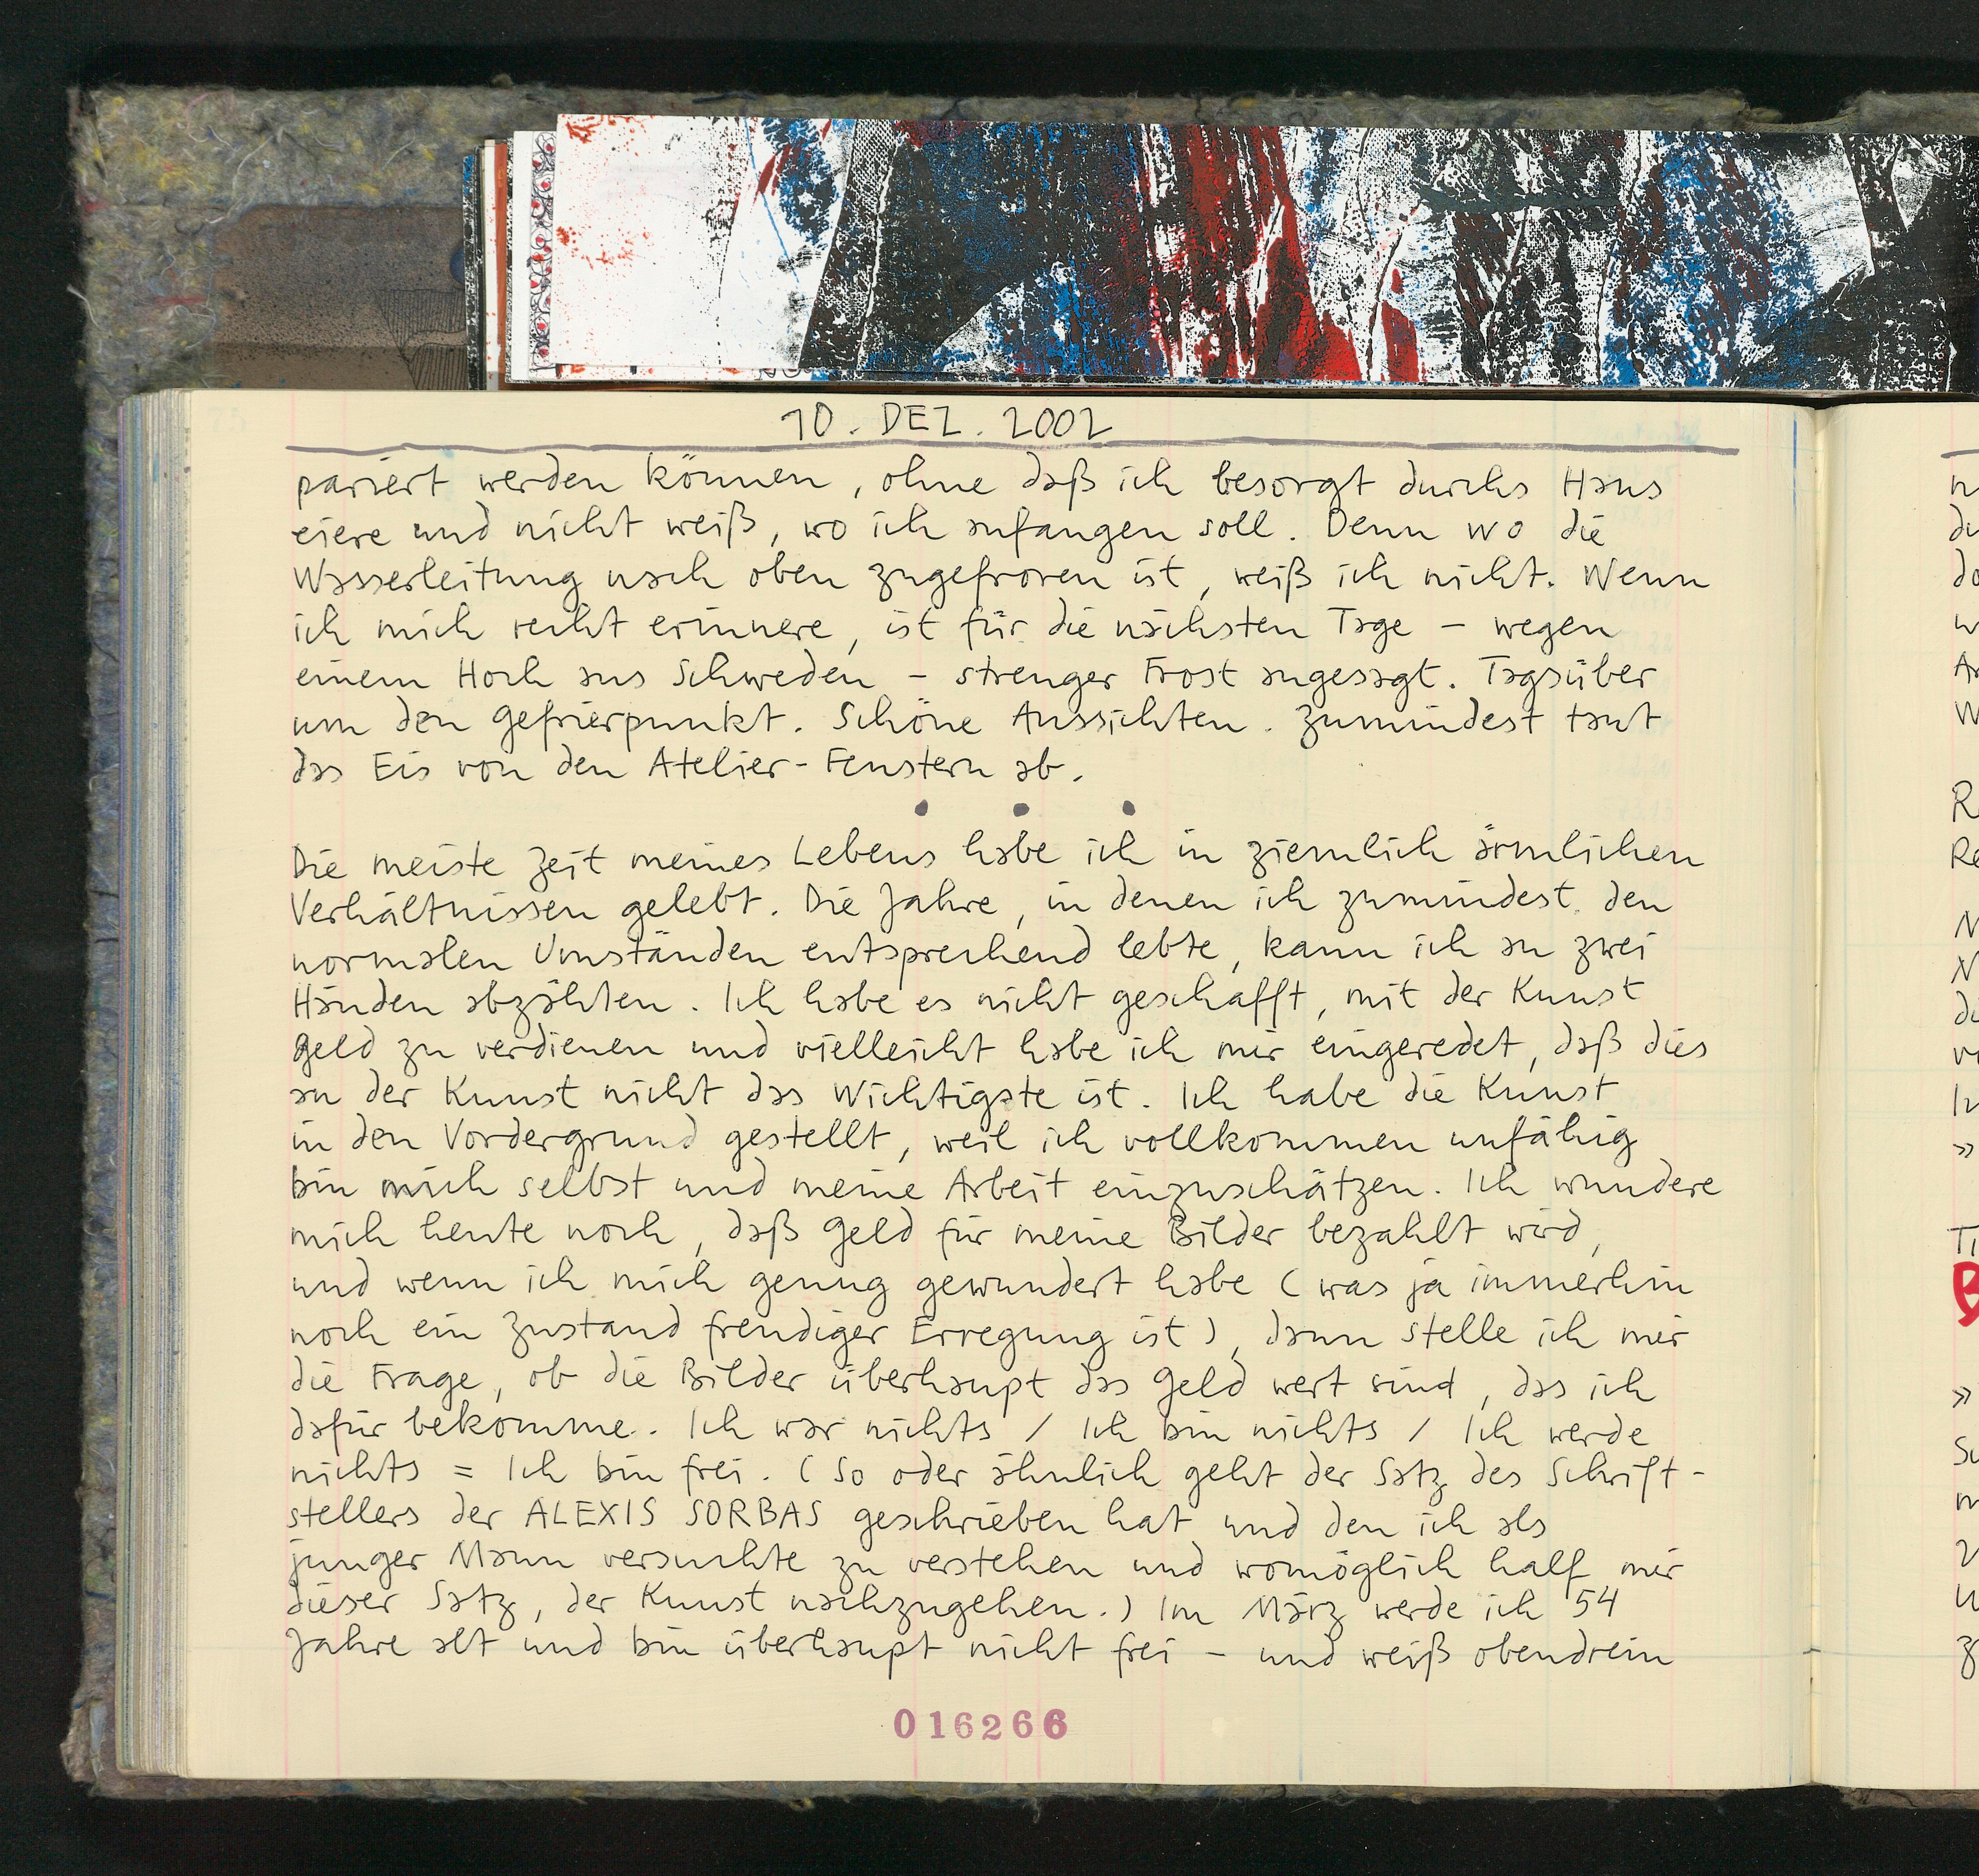 10. DEZ. 2002
pariert werden können, ohne daß ich besorgt durchs Haus
eiere und nicht weiß, wo ich anfangen soll. Denn wo die
Wasserleitung nach oben zugefroren ist, weiß ich nicht. Wenn
ich mich recht erinnere, ist für die nächsten Tage – wegen
einem Hoch aus Schweden – strenger Frost angesagt. Tagsüber
um den Gefrierpunkt. Schöne Aussichten. Zumindest taut
das Eis von den Atelier-Fenstern ab.
• • •
Die meiste Zeit meines Lebens habe ich in ziemlich ärmlichen
Verhältnissen gelebt. Die Jahre, in denen ich zumindest den
normalen Umständen entsprechend lebte, kann ich an zwei
Händen abzählen. Ich habe es nicht geschafft, mit der Kunst
Geld zu verdienen und vielleicht habe ich mir eingeredet, daß dies
an der Kunst nicht das Wichtigste ist. Ich habe die Kunst
in den Vordergrund gestellt, weil ich vollkommen unfähig
bin mich selbst und meine Arbeit einzuschätzen. Ich wundere
mich heute noch, daß Geld für meine Bilder bezahlt wird,
und wenn ich mich genug gewundert habe (was ja immerhin
noch ein Zustand freudiger Erregung ist), dann stelle ich mir
die Frage, ob die Bilder überhaupt das Geld wert sind, das ich
dafür bekomme. Ich war nichts / Ich bin nichts / Ich werde
nichts = Ich bin frei. (So oder ähnlich geht der Satz des Schrift-
stellers der ALEXIS SORBAS geschrieben hat und den ich als
junger Mann versuchte zu verstehen und womöglich half mir
dieser Satz, der Kunst nachzugehen.) Im März werde ich 54
Jahre alt und bin überhaupt nicht frei – und weiß obendrein
016266